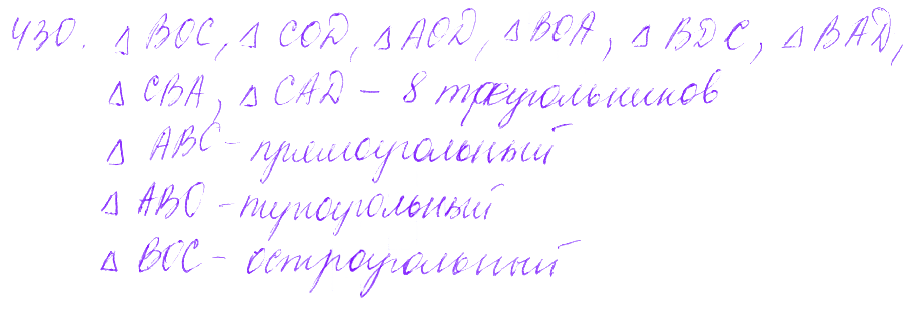 430. Δ BOC, Δ COD, Δ AOD, Δ BOA, Δ BDC, Δ BAD,
Δ CBA, Δ CAD – 8 треугольников
Δ ABC – прямоугольный
Δ ABO – тупоугольный
Δ BOC – остроугольный